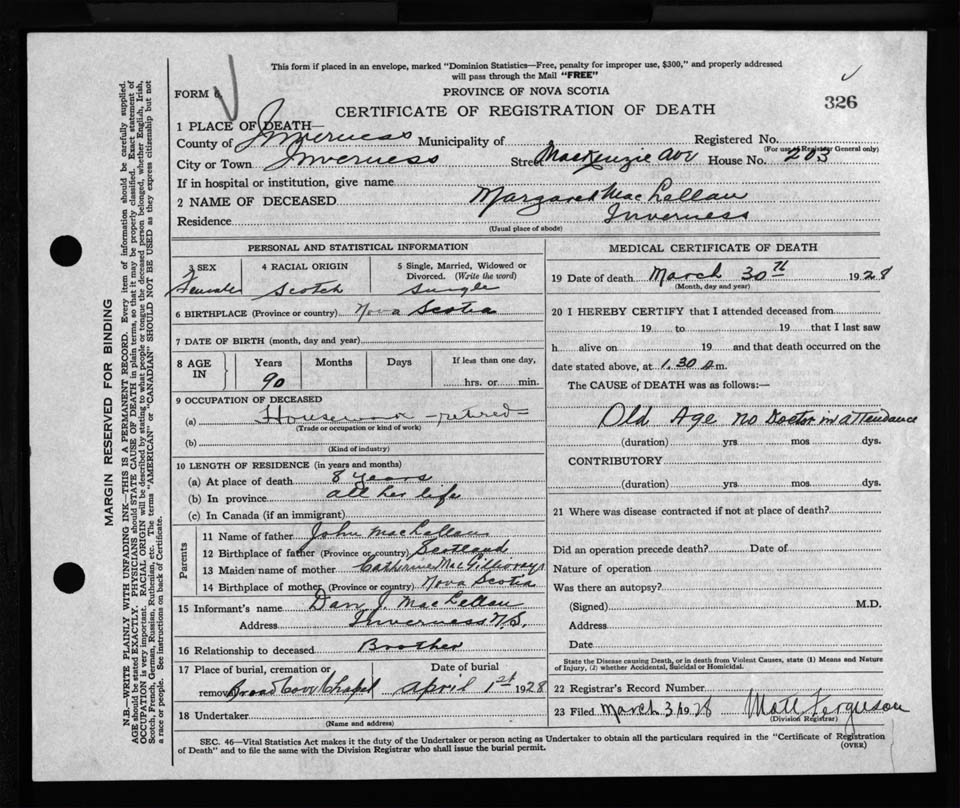 This form if placed in an envelope, marked "Dominion Statistics—Free, penalty for improper use, $300," and properly addressed
will pass through the Mail "FREE"
FORM
PROVINCE OF NOVA SCOTIA
326
CERTIFICATE OF REGISTRATION OF DEATH
1 PLACE OF DEATH—
County of Inverness Municipality of Registered No.
(For use of Registrar General only)
City or Town Inverness Street MacKenzie Ave House No. 203
If in hospital or institution, give name
2 NAME OF DECEASED Margaret MacLellan
Residence Inverness
(Usual place of abode)
PERSONAL AND STATISTICAL INFORMATION
3 SEX 4 RACIAL ORIGIN 5 Single, Married, Widowed or
Divorced. (Write the word)
Female Scotch Single
6 BIRTHPLACE (Province or country) Nova Scotia
7 DATE OF BIRTH (month, day and year)
8 AGE IN Years Months Days If less than one day,
90 hrs. or min.
9 OCCUPATION OF DECEASED
(a) Housework - retired
(Trade or occupation or kind of work)
(b)
(Kind of industry)
10 LENGTH OF RESIDENCE (in years and months)
(a) At place of death 8 years
(b) In province all her life
(c) In Canada (if an immigrant)
Parents
11 Name of father John MacLellan
12 Birthplace of father (Province or country) Scotland
13 Maiden name of mother Catherine MacGillivray
14 Birthplace of mother (Province or country) Nova Scotia
15 Informant's name Dan J. MacLellan
Address Inverness N.S.
16 Relationship to deceased Brother
17 Place of burial, cremation or Date of burial
removal Broad Cove Chapel April 1st 1928
18 Undertaker
(Name and address)
MEDICAL CERTIFICATE OF DEATH
19 Date of death March 30th 1928
(Month, day and year)
20 I HEREBY CERTIFY that I attended deceased from
19 to 19 that I last saw
h alive on 19 and that death occurred on the
date stated above, at 1.30 m.
The CAUSE of DEATH was as follows:—
Old Age no Doctor in attendance
(duration) yrs. mos. dys.
CONTRIBUTORY
(duration) yrs. mos. dys.
21 Where was disease contracted if not at place of death?
Did an operation precede death? Date of
Nature of operation
Was there an autopsy?
(Signed) M.D.
Address
Date
State the Disease causing Death, or in death from Violent Causes, state (1) Means and Nature
of Injury, (2) whether Accidental, Suicidal or Homicidal.
22 Registrar's Record Number
23 Filed March 31 1928 Matt Ferguson
(Division Registrar)
SEC. 46—Vital Statistics Act makes it the duty of the Undertaker or person acting as Undertaker to obtain all the particulars required in the "Certificate of Registration
of Death" and to file the same with the Division Registrar who shall issue the burial permit.
(OVER)
MARGIN RESERVED FOR BINDING
N.B.—WRITE PLAINLY WITH UNFADING INK—THIS IS A PERMANENT RECORD. Every item of information should be carefully supplied.
AGE should be stated EXACTLY. PHYSICIANS should STATE CAUSE OF DEATH in plain terms, so that it may be properly classified. Exact statement of
OCCUPATION is very important. RACIAL ORIGIN will be described by stating to what people or tongue the deceased person belonged, whether English, Irish,
Scotch, French, German, Russian, Ruthenian, etc. The terms "AMERICAN" or "CANADIAN" SHOULD NOT BE USED as they express citizenship but not
a race or people. See instructions on back of Certificate.